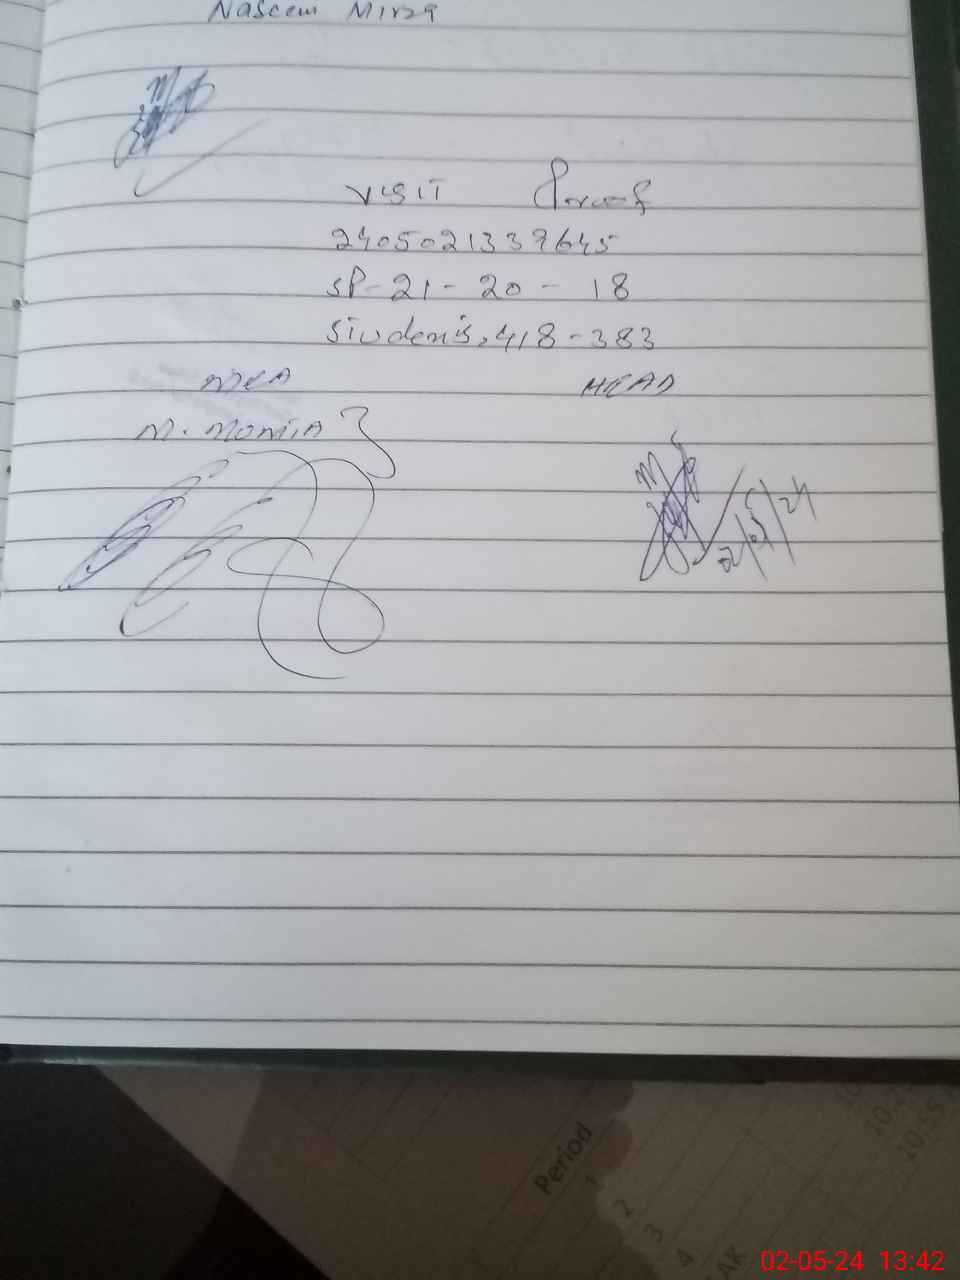 Naseem Mirza
VISIT Proof
2405021337645
SP-21-20-18
Students, 418-383
MEA HEAD
M.
02/05/24
Period
1
2
3
4
AK
10:55
02-05-24 13:42